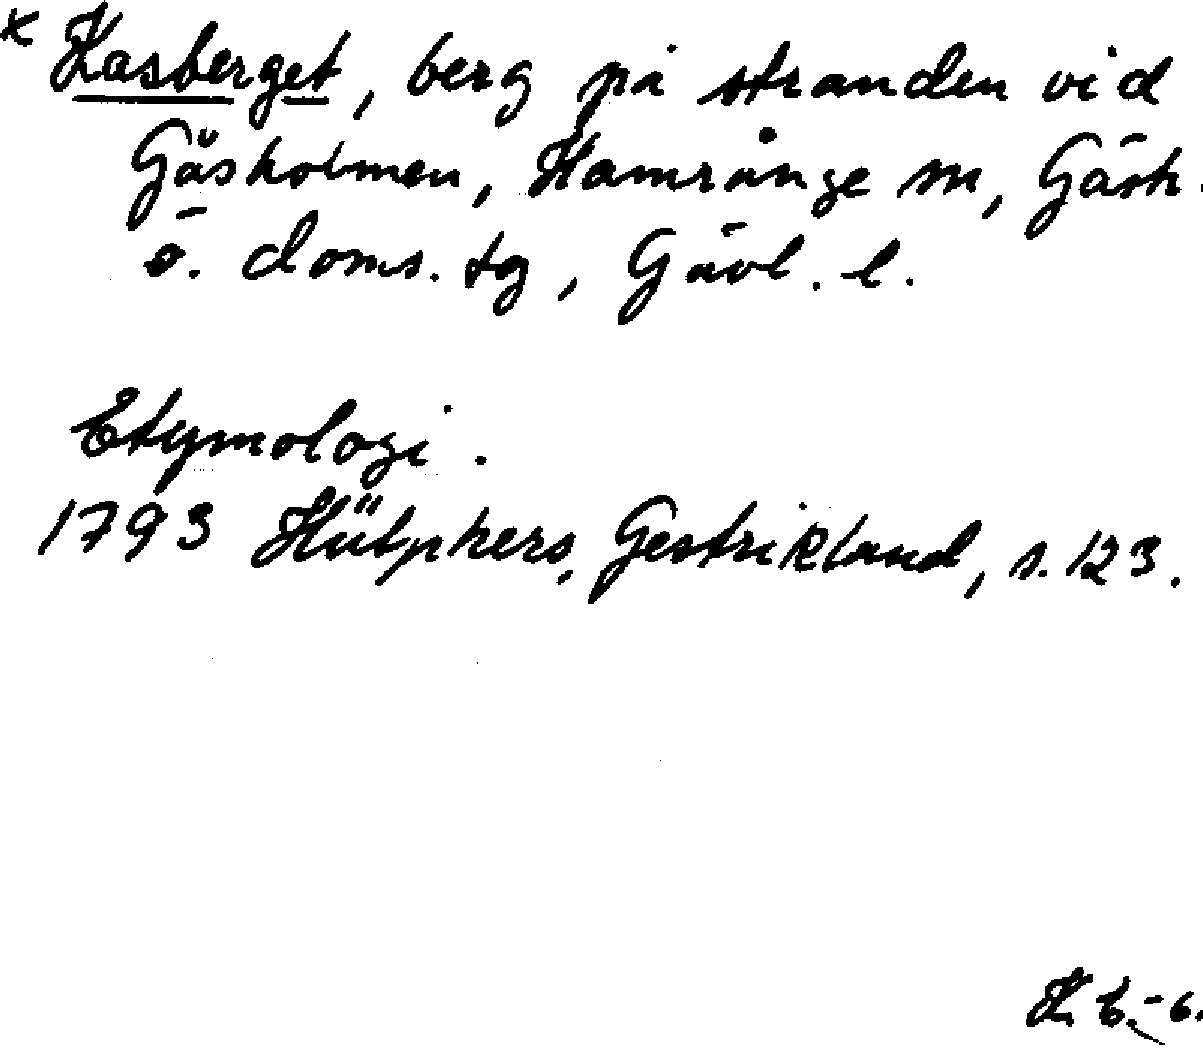 * Kasberget, berg på stranden vid
Gåsholmen, Hamrånge sn, Gästr.
ö. doms. tg, Gävl. l.
Etymologi.
1793 Hülphers, Gestrikland, s. 123.